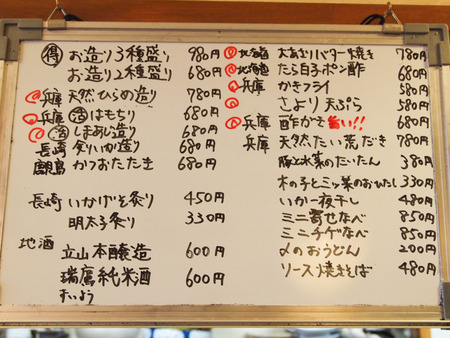 得 お造り3種盛り 980円
お造り2種盛り 680円
兵庫 天然ひらめ造り 780円
兵庫 活はもちり 680円
活しまあじ造り 680円
長崎 炙りいか造り 680円
鹿児島 かつおたたき 680円
長崎 いかげそ炙り 450円
明太子炙り 330円
地酒
立山本醸造 600円
瑞鷹純米酒 600円
ずいよう
北海道 大あさりバター焼き 780円
北海道 たら白子ポン酢 680円
兵庫 かきフライ 580円
さより天ぷら 580円
兵庫 酢かき 旨い!! 680円
兵庫 天然たい荒だき 780円
豚と水菜のたいたん 380円
木の子と三ツ葉のおひたし 330円
いか一夜干し 480円
ミニ寄せなべ 850円
ミニチゲなべ 850円
〆のおうどん 200円
ソース焼きそば 480円